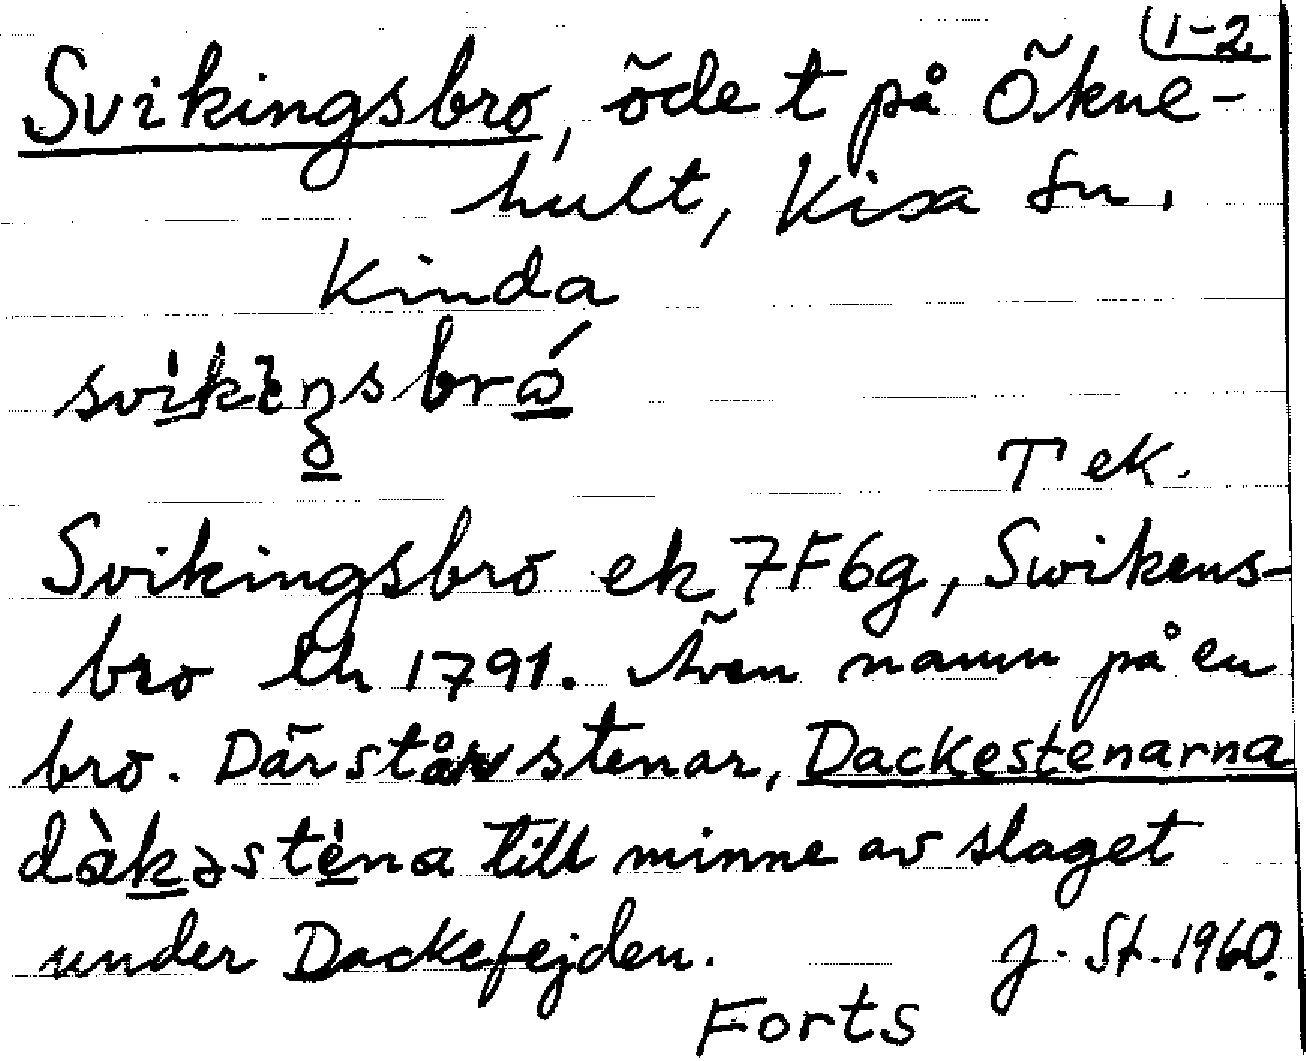 1-2
Svikingsbro, öde t på Ökne-
hult, Kisa sn.
Kinda
Tek.
Svikingsbro ek 7F6g, Swikens-
bro lh 1791. Även namn på en
bro. Där står stenar, Dackestenarna
dàkəstèna till minne av slaget
under Dackefejden. J. St. 1960.
Forts